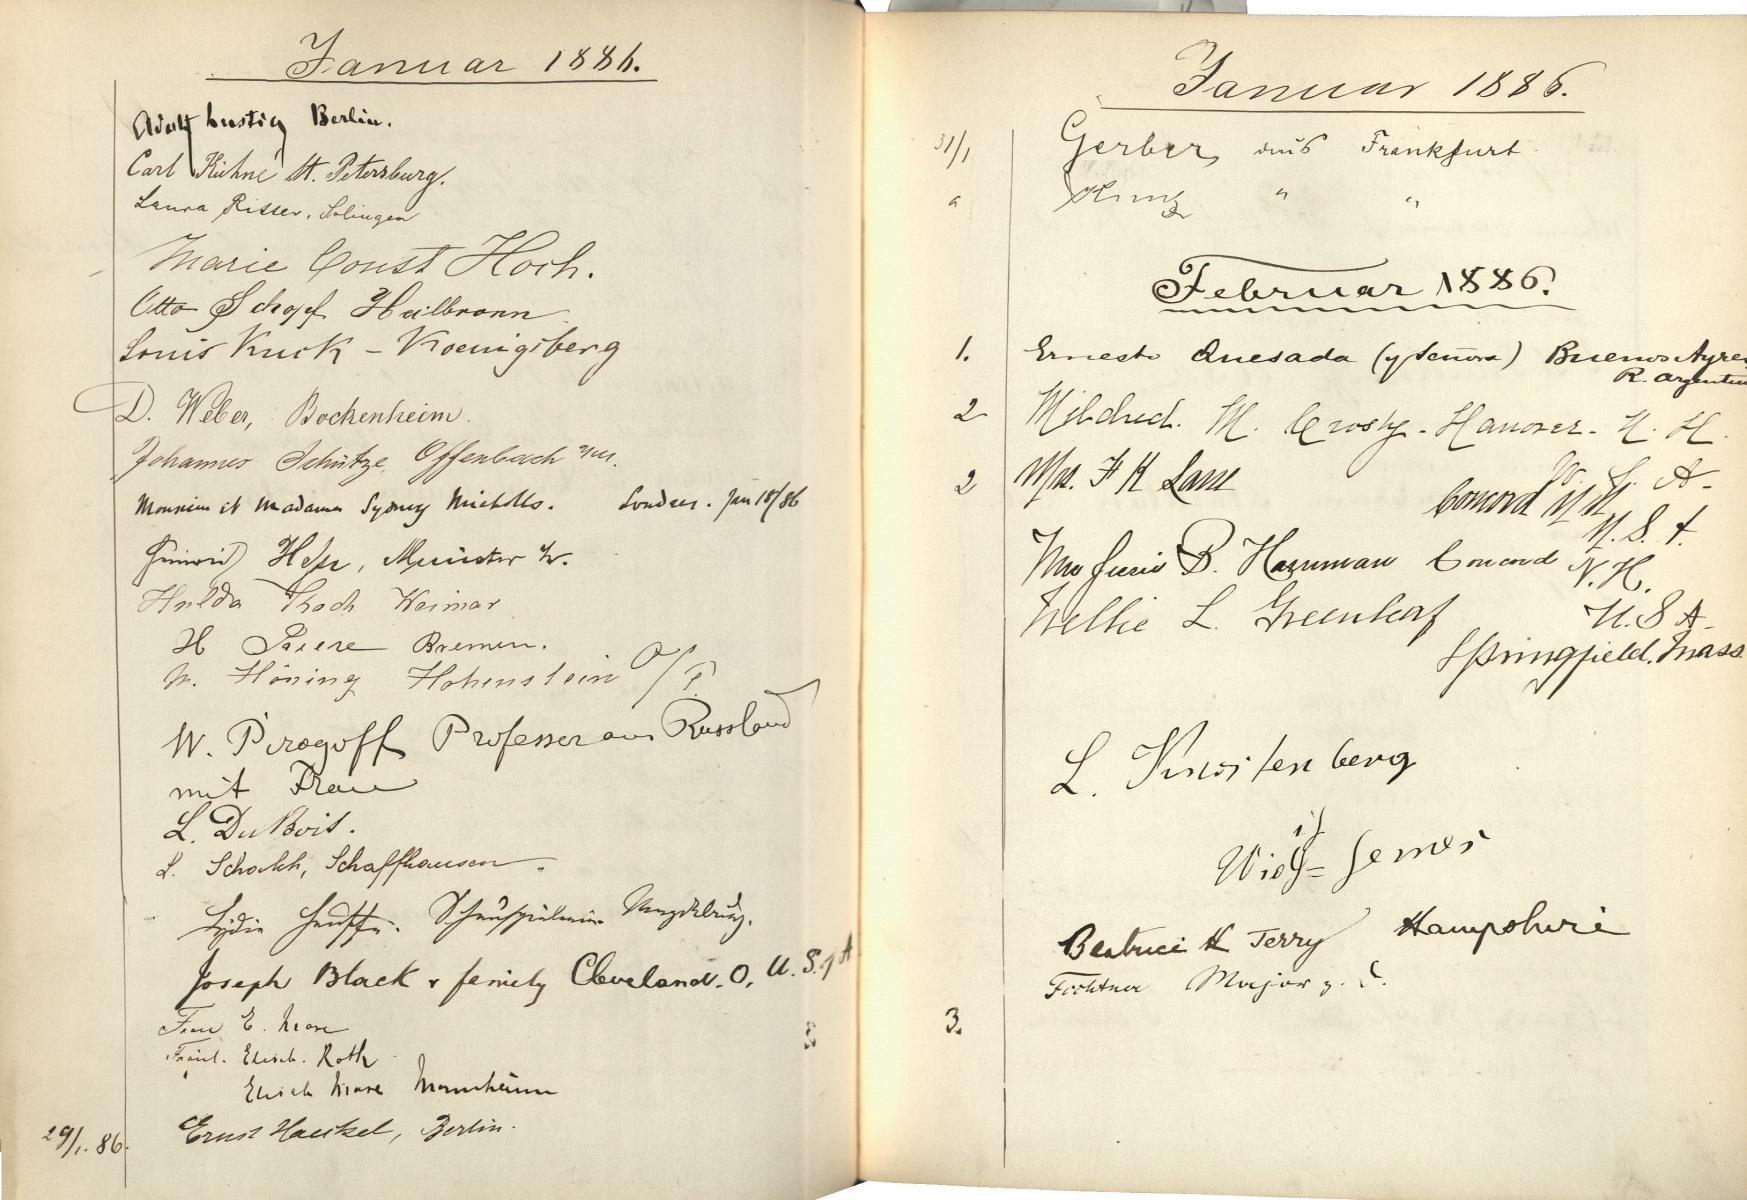 Januar 1886.
Adolf Lustig Berlin.
Carl Kühne St. Petersburg.
Laura Ritter, Solingen
Marie Const Hoch.
Otto Schopf Heilbronn
Louis Kuck – Koenigsberg
D. Weber, Bockenheim.
Johannes Schütze, Offenbach a/M.
Monsieur et Madame Sydney Nicholls. Londres. Jan 18/86
Heinrich Hesse, Münster i/W.
Hulda Weimar
H Bremen.
M. Höning Hohenstein O/P.
W. Pirogoff Professer aus Russland
mit Frau
L. DuBois.
L. Schalch, Schaffhausen.
Lydia Schauspielerin Magdeburg.
Joseph Black & family Cleveland. O, U. S. of A
Frau E.
Fräul. Elisab. Roth
" Elisab Mannheim
29/1. 86. Ernst Haeckel, Berlin.
Januar 1886.
31/1 Gerber, aus Frankfurt
a Kunz " "
Februar 1886.
1. Ernesto Quesada (y Señora) Buenos Ayres
R. Argentin
2 Mildred. M. Crosby - Hanover - N. H.
U. S. A-
2 Mrs. F K Lane Concord N H.
U. S. A.
Mrs B. Harriman Concord N. H.
U. S A-
Nellie L. Greenleaf
Springfield. Mass
L. Knostenberg
Beatrice H Terry Hampshire
Fichtner Major z. D.
3.